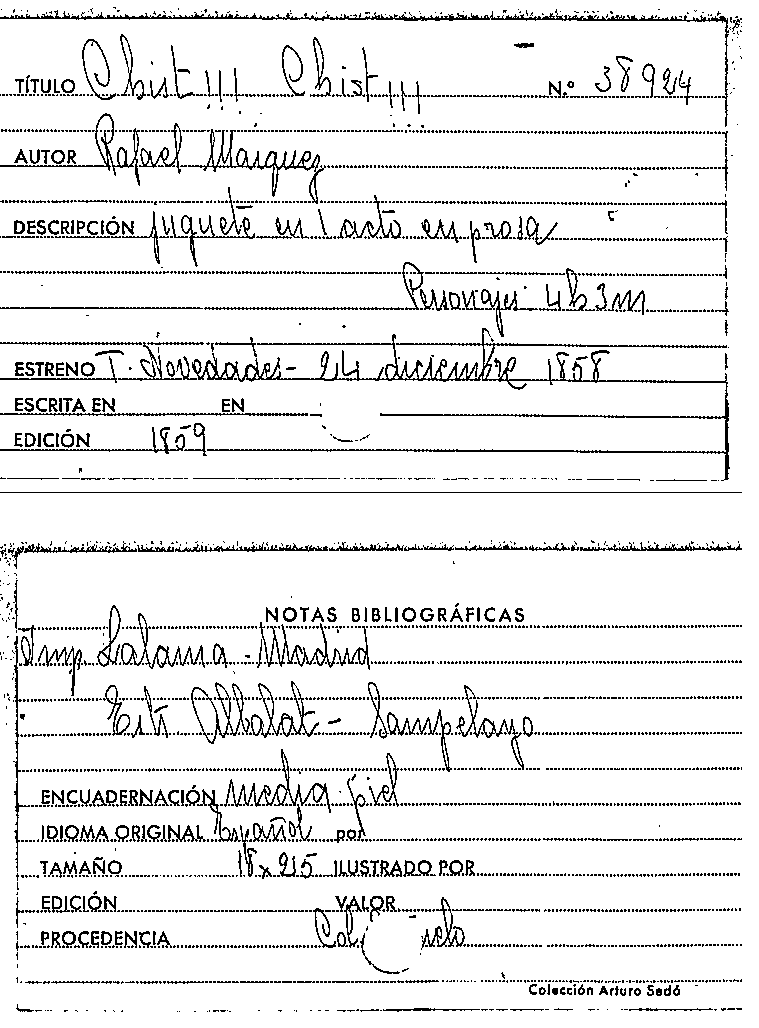 TÍTULO Chist!!! Chist!!! N.º 38924
AUTOR Rafael Marquez
DESCRIPCIÓN juguete en 1 acto en prosa
Personajes 4h3m
ESTRENO T. Novedades - 24 diciembre 1858
ESCRITA EN EN
EDICIÓN 1859
NOTAS BIBLIOGRÁFICAS
Imp Lalama - Madrid
Estr. Albalat - Sampelayo
ENCUADERNACIÓN media piel
IDIOMA ORIGINAL Español por
TAMAÑO 18 x 215 ILUSTRADO POR
EDICIÓN VALOR
PROCEDENCIA Col.
Colección Arturo Sedó